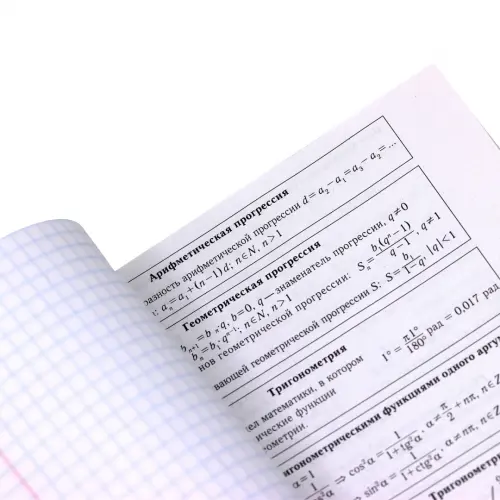 Арифметическая прогрессия
разность арифметической прогрессии d = a₂ − a₁ = a₃ − a₂ = ...
aₙ = a₁ + (n−1)d; n∈N, n>1
Геометрическая прогрессия
bₙ₊₁ = bₙ·q, b≠0, q — знаменатель прогрессии, q≠0
bₙ = b₁·qⁿ⁻¹; n∈N, n>1
нов геометрической прогрессии: Sₙ = b₁(qⁿ−1)/q−1, q≠1
вающей геометрической прогрессии S: S = b₁/1−q, |q|<1
Тригонометрия
ел математики, в котором
ические функции
ометрии.
1° = π1°/180° рад = 0,017 рад
игонометрическими функциями одного аргу
α = 1
⇒ cos²α = 1/1+tg²α, α≠π/2+πn, n∈Z
⇒ sin²α = 1/1+ctg²α, α≠πn, n∈Z
Тригонометри